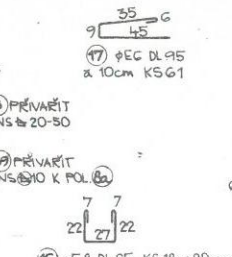 35 6
9 45
17 φE6 DL 95
a 10cm KS61
PŘIVAŘIT
20-50
PŘIVAŘIT
10 K POL. 8a
7 7
22 27 22